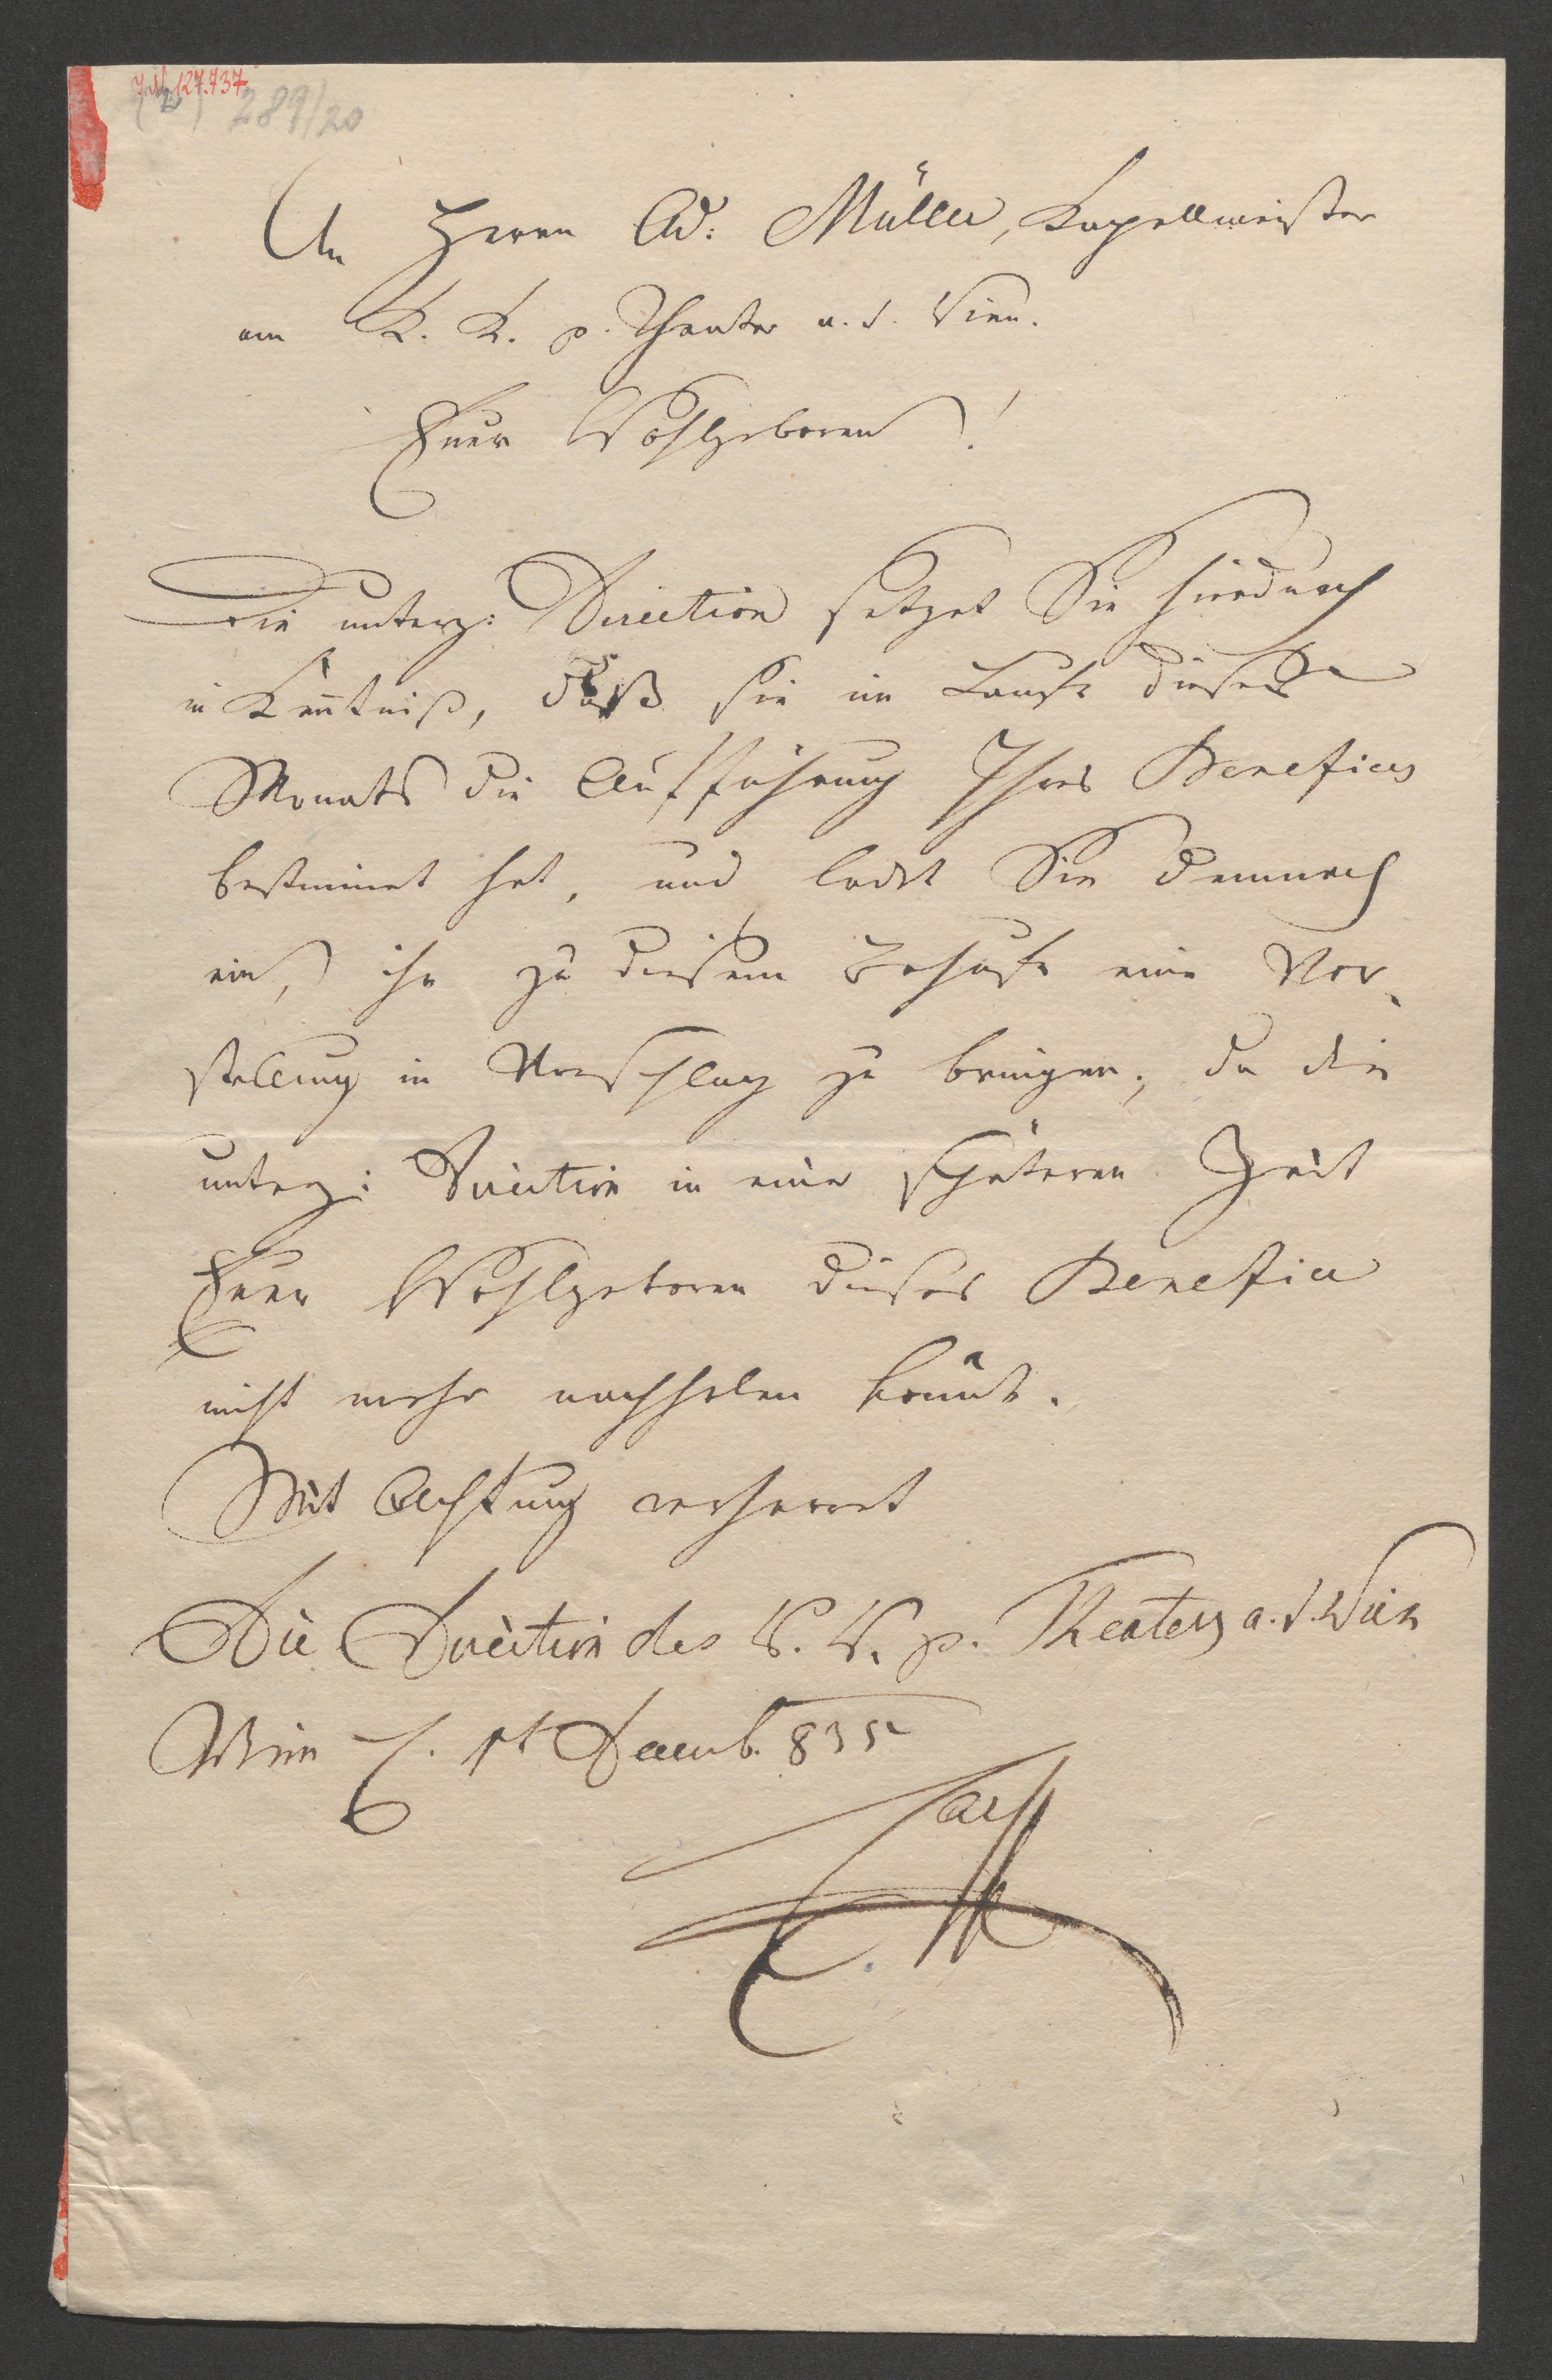 J.N. 127.737
289/20
An Herrn Ad: Müller, Kapellmeister
am K. K. p. Theater a. d. Wien.
Euer Wohlgeboren!
Die unterz: Direction setzet Sie hiedurch
in Keñtniß, daß sie im Laufe dieses
Monats die Aufführung Ihres Benefices
bestimmet hat, und ladet Sie demnach
ein, ihr zu diesem Behufe eine Vor-
stellung in Vorschlag zu bringen, da die
unterz: Direction in einer späteren Zeit
Euer Wohlgeboren dieses Benefice
nicht mehr nachholen könnte.
Mit Achtung verharret
Die Direction des K. K. p. Theaters a. d. Wien
Wien d. 1t Decemb. 835
Carl